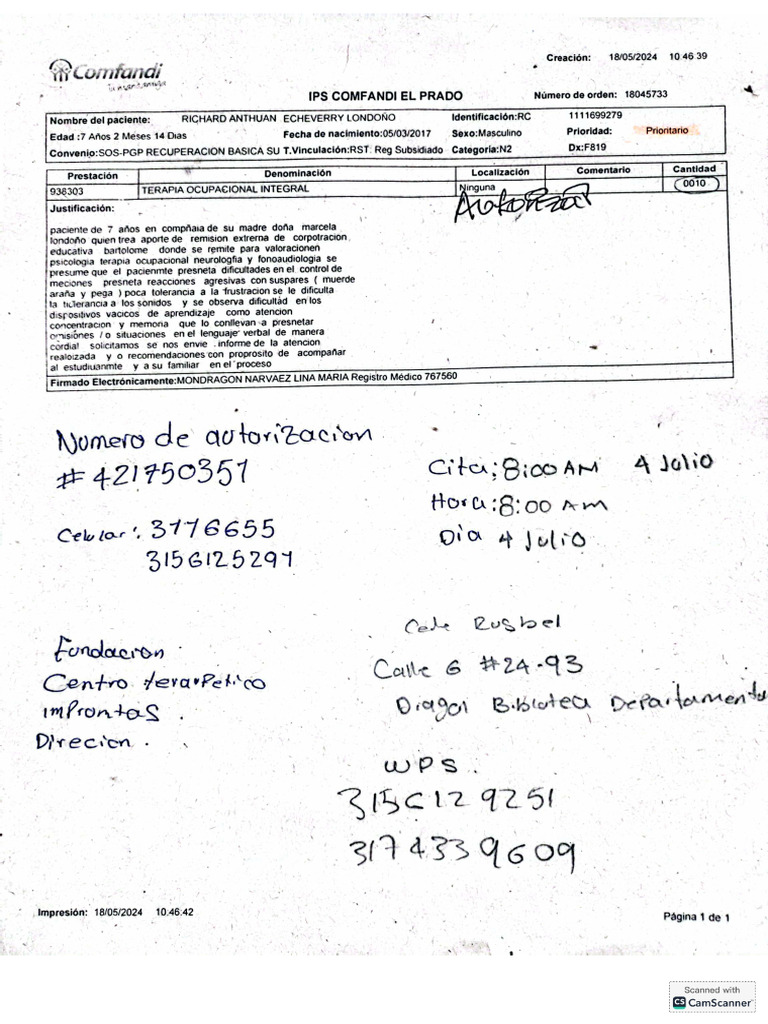 Comfandi
Creación: 18/05/2024 10:46:39
IPS COMFANDI EL PRADO
Número de orden: 18045733
Nombre del paciente: RICHARD ANTHUAN ECHEVERRY LONDOÑO Identificación:RC 1111699279
Edad :7 Años 2 Meses 14 Dias Fecha de nacimiento:05/03/2017 Sexo:Masculino Prioridad: Prioritario
Convenio:SOS-PGP RECUPERACION BASICA SU T.Vinculación:RST. Reg Subsidiado Categoria:N2 Dx:F819
Prestación Denominación Localización Comentario Cantidad
938303 TERAPIA OCUPACIONAL INTEGRAL Ninguna 0010
Autorizar
Justificación:
paciente de 7 años en compñaia de su madre doña marcela
londoño quien trea aporte de remision extrerna de corpotracion
educativa bartolome donde se remite para valoracionen
psicologia terapia ocupacional neurologfia y fonoaudiologia se
presume que el pacienmte presneta dificultades en el control de
meciones presneta reacciones agresivas con suspares ( muerde
araña y pega ) poca tolerancia a la frustracion se le dificulta
la ticlerancia a los sonidos y se observa dificultad en los
dispositivos vacicos de aprendizaje como atencion
concentracion y memoria que lo conllevan a presnetar
omisiónes / o situaciones en el lenguaje verbal de manera
cordial solicitamos se nos envie informe de la atencion
realoizada y o recomendaciones con proprosito de acompañar
al estudiuanmte y a su familiar en el proceso
Firmado Electrónicamente:MONDRAGON NARVAEZ LINA MARIA Registro Médico 767560
Numero de autorizacion
# 421750351
Cita: 8:00 AM 4 Julio
Hora: 8:00 Am
Dia 4 Julio
Celular: 3776655
3156125297
Rusbel
Fundacion
Centro terarpetico
improntas
Direcion.
Calle 6 #24-93
Diagol Bibloteca Departamenta
WPS.
3156129251
3174339609
Impresión: 18/05/2024 10:46:42
Página 1 de 1
Scanned with
CS CamScanner